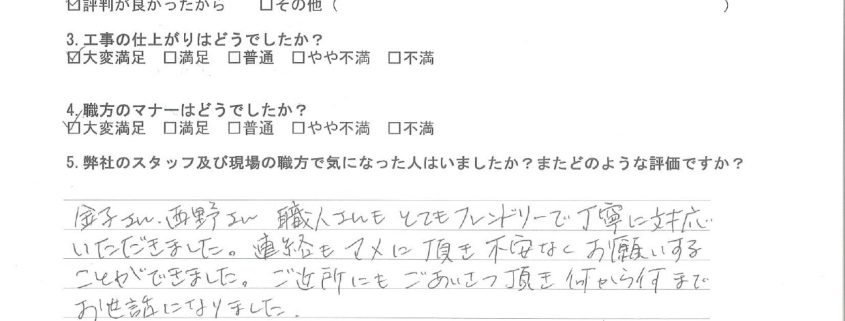 ☑評判が良かったから　□その他（　　　　　　　　　　　　　　　　　　）
3. 工事の仕上がりはどうでしたか？
☑大変満足　□満足　□普通　□やや不満　□不満
4. 職方のマナーはどうでしたか？
☑大変満足　□満足　□普通　□やや不満　□不満
5. 弊社のスタッフ及び現場の職方で気になった人はいましたか？またどのような評価ですか？
金子さん、西野さん　職人さんも　とてもフレンドリーで丁寧に対応
いただきました。連絡もマメに頂き不安なくお願いする
ことができました。ご近所にもごあいさつ頂き何から何まで
お世話になりました。